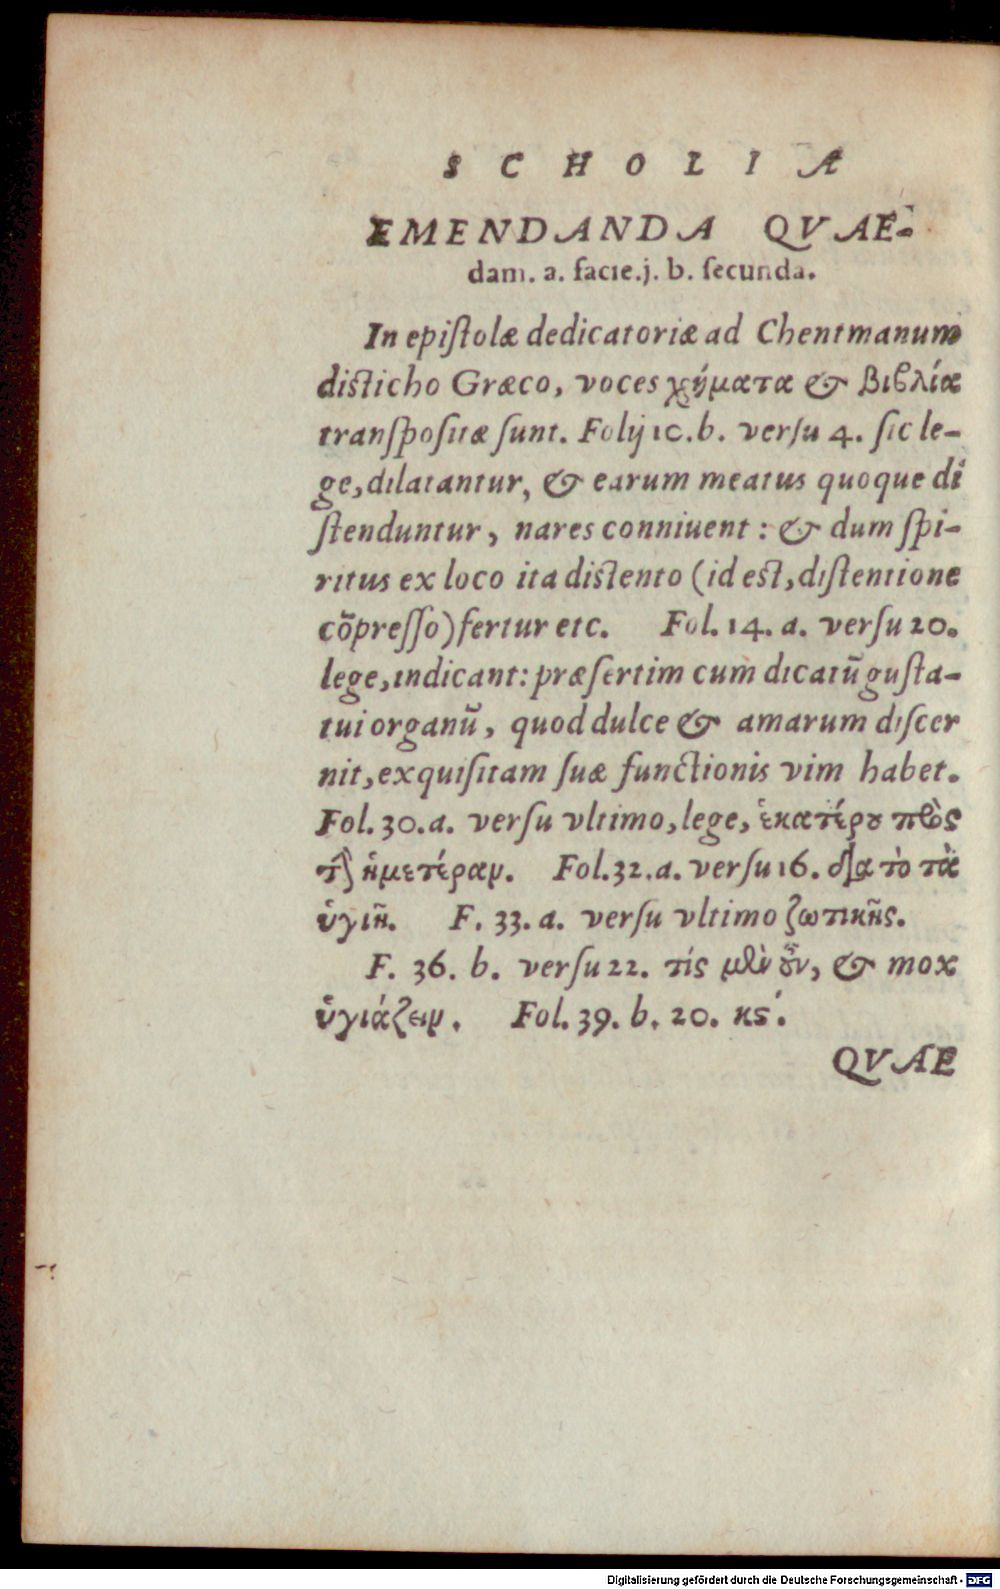 SCHOLIA
EMENDANDA QVAE-
dam. a. facie.j. b. ſecunda.
In epiſtolæ dedicatoriæ ad Chentmanum
diſticho Græco, voces χήματα & βιβλία
tranſpoſitæ ſunt. Folij 10.b. verſu 4. ſic le-
ge, dilatantur, & earum meatus quoque di
ſtenduntur, nares conniuent: & dum ſpi-
ritus ex loco ita diſtento (id eſt, diſtentione
cõpreſſo) fertur etc. Fol. 14. a. verſu 20.
lege, indicant: præſertim cum dicatũ guſta-
tui organũ, quod dulce & amarum diſcer
nit, exquiſitam ſuæ functionis vim habet.
Fol. 30. a. verſu vltimo, lege, ἑκατέρου πρὸς
τὴν ἡμετέραν. Fol. 32. a. verſu 16. διὰ τὸ τὰ
ὑγιῆ. F. 33. a. verſu vltimo ζωτικῆς.
F. 36. b. verſu 22. τίς μὲν οὖν, & mox
ὑγιάζειν. Fol. 39. b. 20. κϛʹ.
QVAE
Digitalisierung gefördert durch die Deutsche Forschungsgemeinschaft - DFG